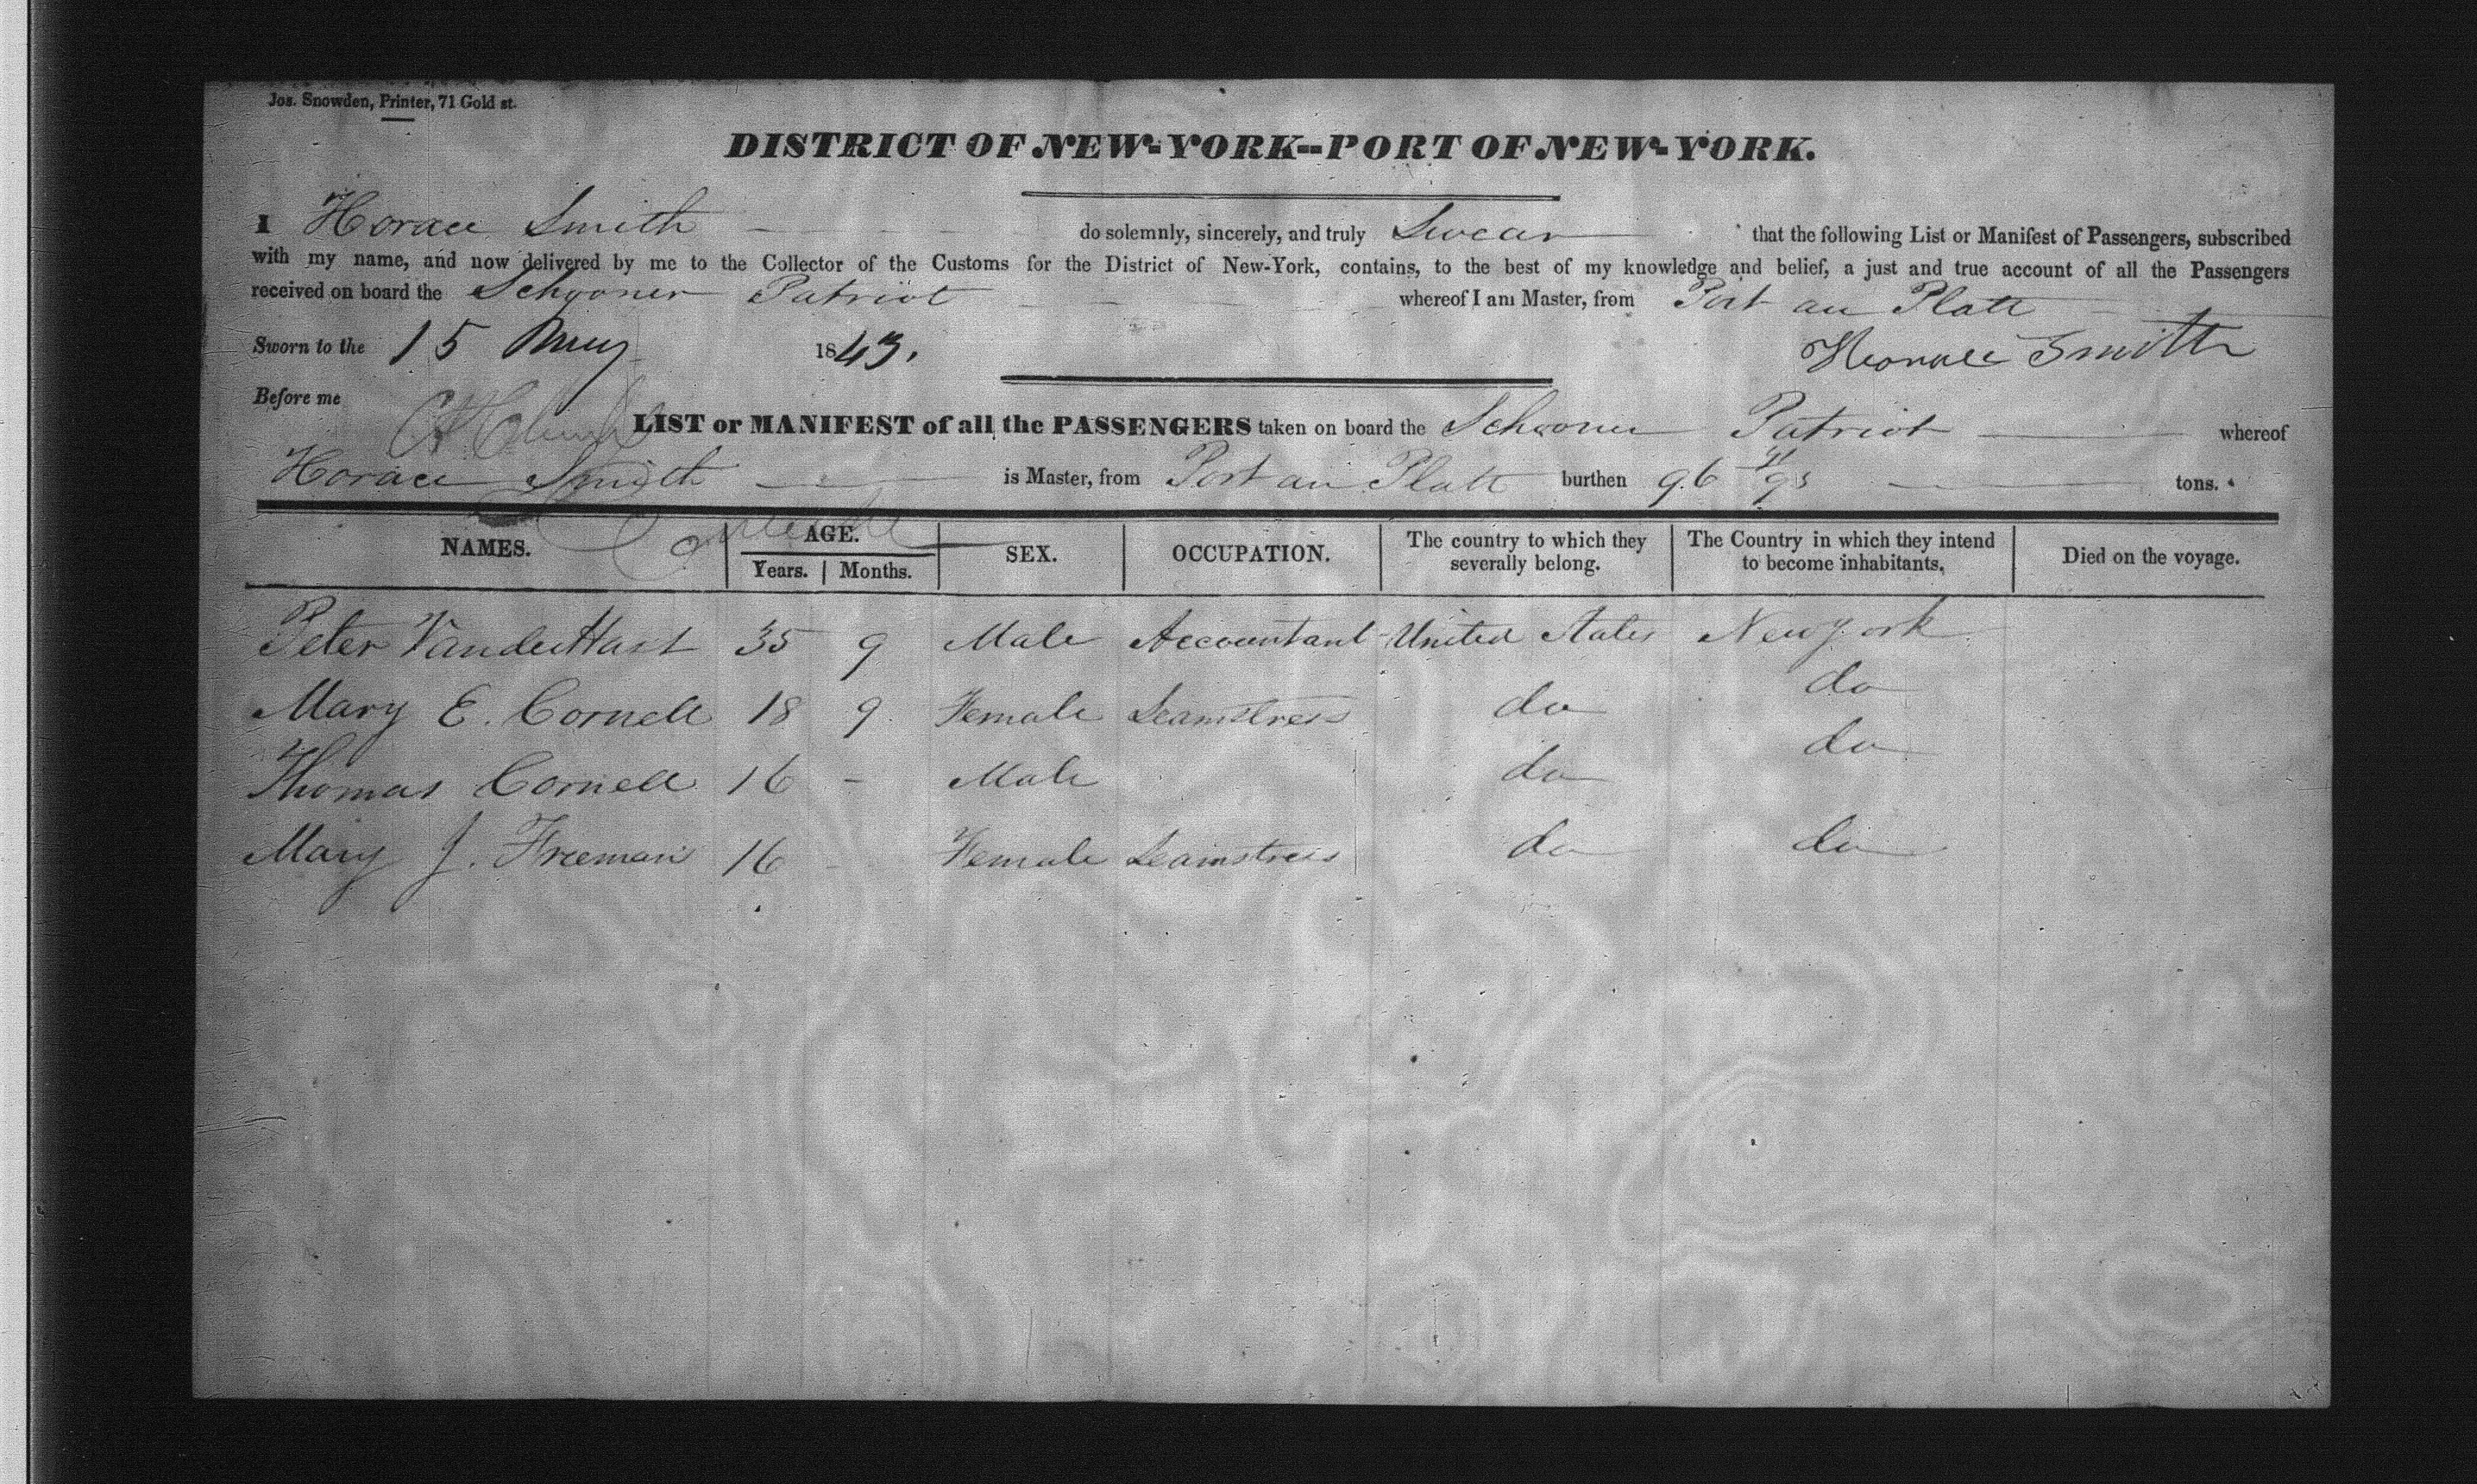 Jos. Snowden, Printer, 71 Gold st.
DISTRICT OF NEW-YORK--PORT OF NEW-YORK.
I Horace Smith do solemnly, sincerely, and truly Swear that the following List or Manifest of Passengers, subscribed
with my name, and now delivered by me to the Collector of the Customs for the District of New-York, contains, to the best of my knowledge and belief, a just and true account of all the Passengers
received on board the Schooner Patriot whereof I am Master, from Port au Platt
Sworn to the 15 May 1843. Horace Smith
Before me
LIST or MANIFEST of all the PASSENGERS taken on board the Schooner Patriot whereof
Horace Smith is Master, from Port au Platt burthen 96 /95 tons.
NAMES. AGE. SEX. OCCUPATION. The country to which they severally belong. The Country in which they intend to become inhabitants. Died on the voyage.
Years. Months.
Peter VanderHast 35 9 Male Accountant United States New York
Mary E. Cornell 18 9 Female Seamstress do do
Thomas Cornell 16 - Male do do
Mary J. Freeman 16 Female Seamstress do do